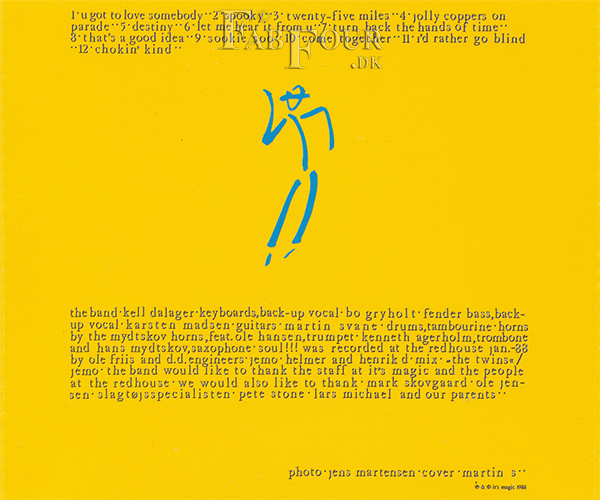 1·u got to love somebody··2·spooky··3·twenty-five miles··4·jolly coppers on
parade··5·destiny··6·let me hear it from u··7·turn back the hands of time··
8·that's a good idea··9·sookie sook·10·come together··11·i'd rather go blind
··12·chokin' kind··
FAB FOUR
.DK
the band·kell dalager·keyboards,back-up vocal·bo gryholt·fender bass,back-
up vocal·karsten madsen·guitars·martin svane·drums,tambourine·horns
by the mydtskov horns,feat.ole hansen,trumpet·kenneth agerholm,trombone
and hans mydtskov,saxophone·soul!!! was recorded at the redhouse jan.-88
by ole friis and d.d.engineers·jemo·helmer and henrik d·mix·-the twins«/
jemo·the band would like to thank the staff at it's magic and the people
at the redhouse·we would also like to thank·mark skovgaard·ole jen-
sen·slagtøjsspecialisten·pete stone·lars michael and our parents··
photo·jens martensen·cover·martin s··
℗ & © it's magic 1988